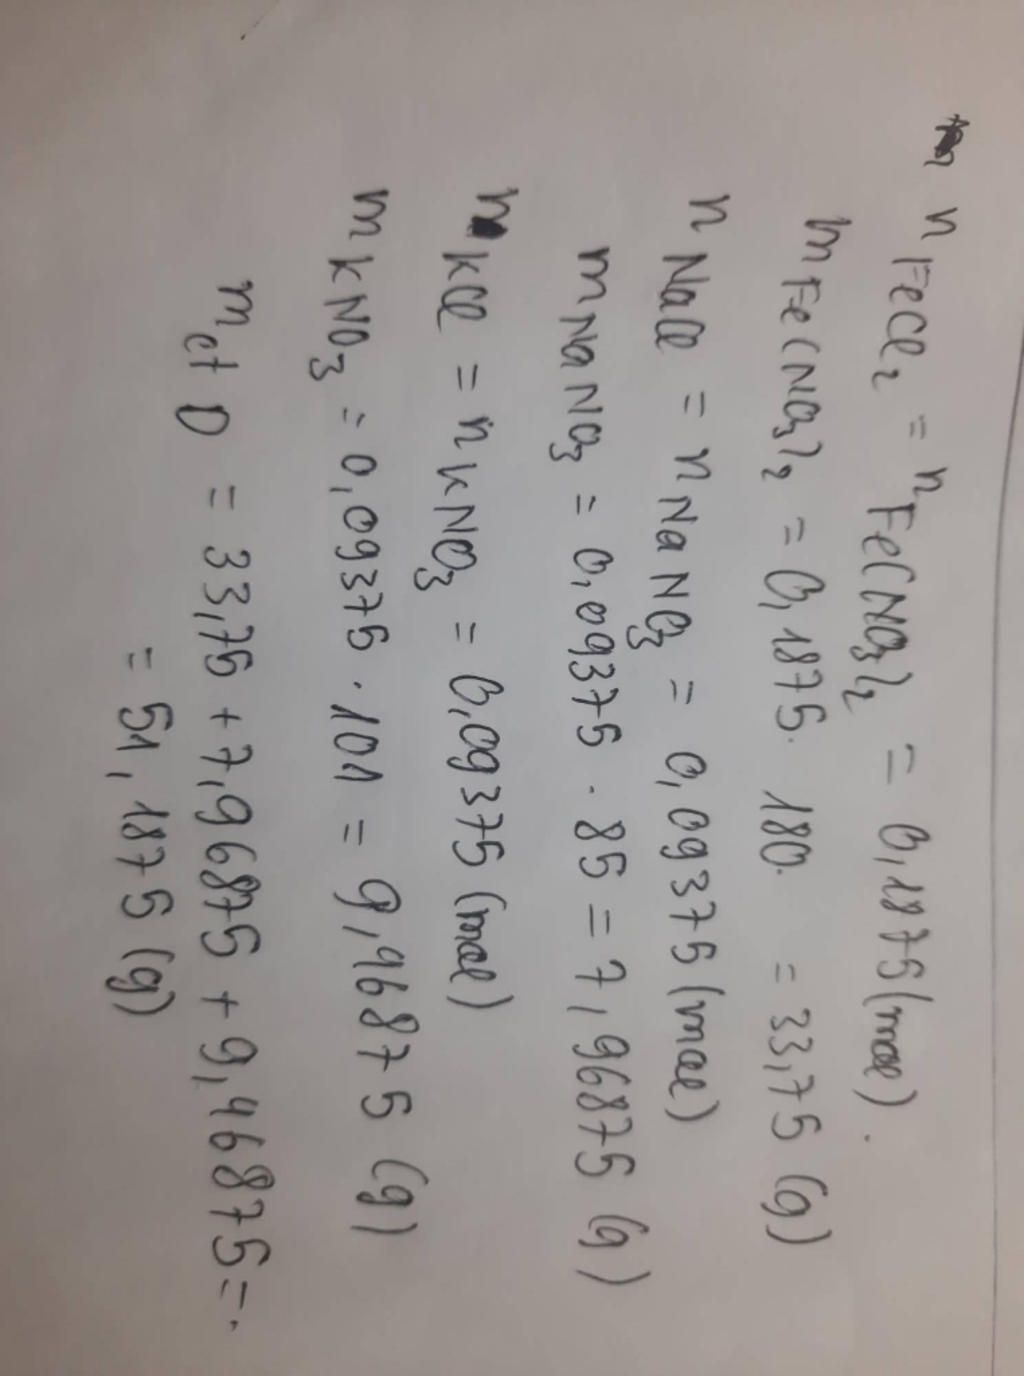 n FeCl₂ = n Fe(NO₃)₂ = 0,1875 (mol).
m Fe(NO₃)₂ = 0,1875. 180. = 33,75 (g)
n NaCl = n NaNO₃ = 0,09375 (mol)
m NaNO₃ = 0,09375 . 85 = 7,96875 (g)
n KCl = n KNO₃ = 0,09375 (mol)
m KNO₃ = 0,09375 . 101 = 9,46875 (g)
m ct D = 33,75 + 7,96875 + 9,46875 =
= 51,1875 (g)